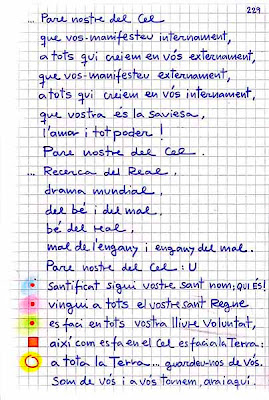 229
... Pare nostre del Cel
que vos-manifesteu internament,
a tots qui creiem en vós externament,
que vos-manifesteu externament,
a tots qui creiem en vós internament,
que vostra és la saviesa,
l'amor i tot poder!
Pare nostre del Cel.
... Recerca del Real,
drama mundial,
del bé i del mal.
bé del real,
mal de l'engany i engany del mal.
Pare nostre del Cel: U
Santificat sigui vostre sant nom; QUI ÉS!
vingui a tots el vostre sant Regne
es faci en tots vostra lliure Voluntat,
així com es fa en el Cel es faci a la Terra:
a tota la Terra... guardeu-nos de vós.
Som de vós i a vos tornem, ara i aquí.